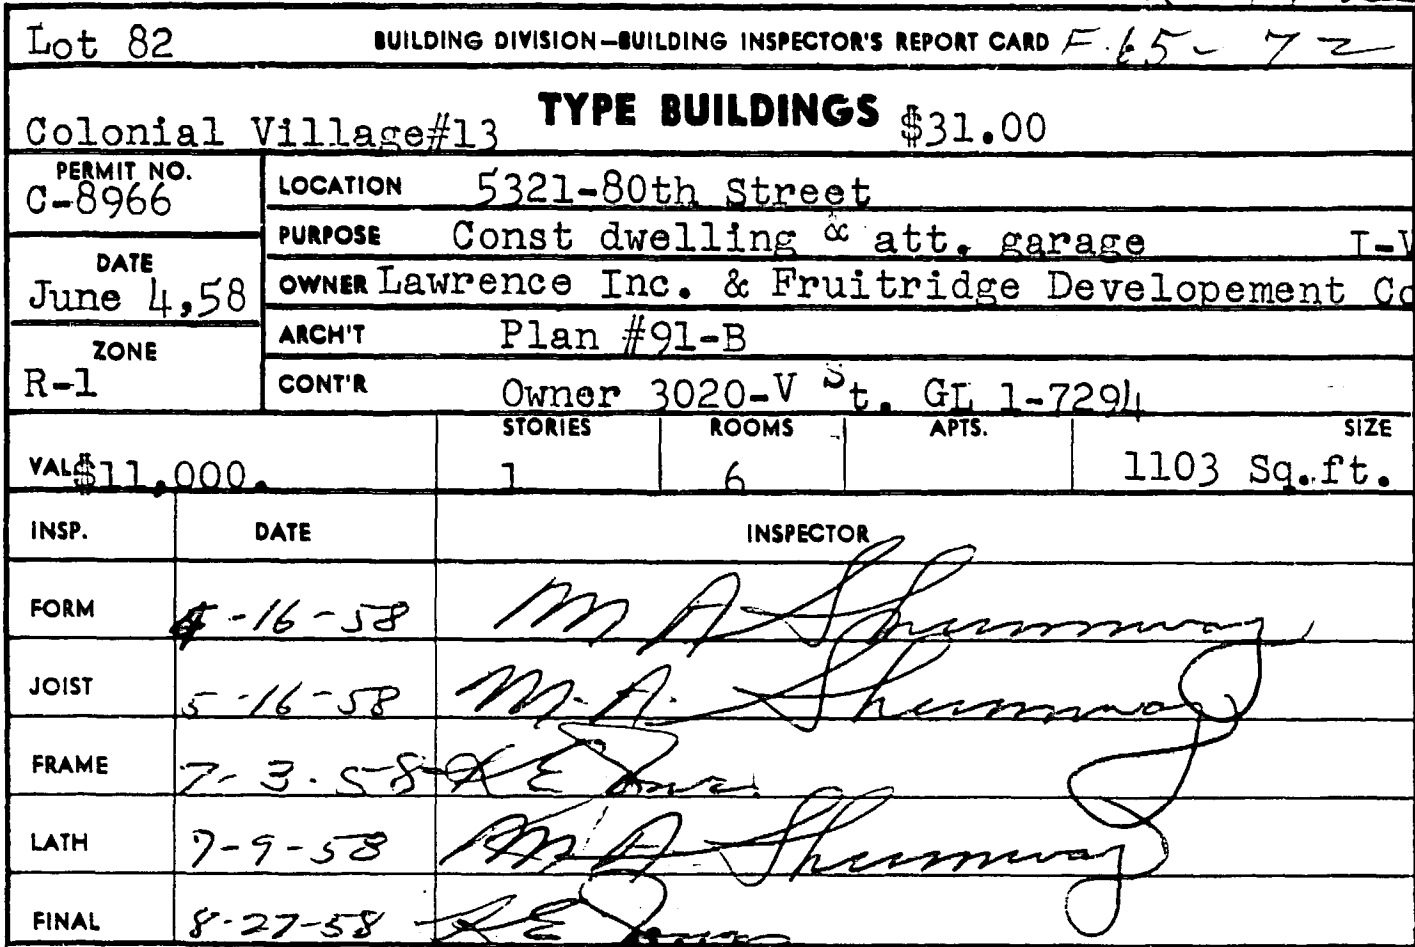 Lot 82 BUILDING DIVISION—BUILDING INSPECTOR'S REPORT CARD F.65-72
Colonial Village#13 TYPE BUILDINGS $31.00
PERMIT NO. C-8966
LOCATION 5321-80th Street
PURPOSE Const dwelling & att. garage I-V
DATE June 4,58
OWNER Lawrence Inc. & Fruitridge Developement Co
ARCH'T Plan #91-B
ZONE R-1
CONT'R Owner 3020-V St. GL 1-7294
STORIES ROOMS APTS. SIZE
VAL $11,000. 1 6 1103 Sq.ft.
INSP. DATE INSPECTOR
FORM -16-58 M A Shumway
JOIST 5-16-58 M.A. Shumway
FRAME 7-3-58 K E
LATH 7-9-58 M A Shumway
FINAL 8-27-58 K E